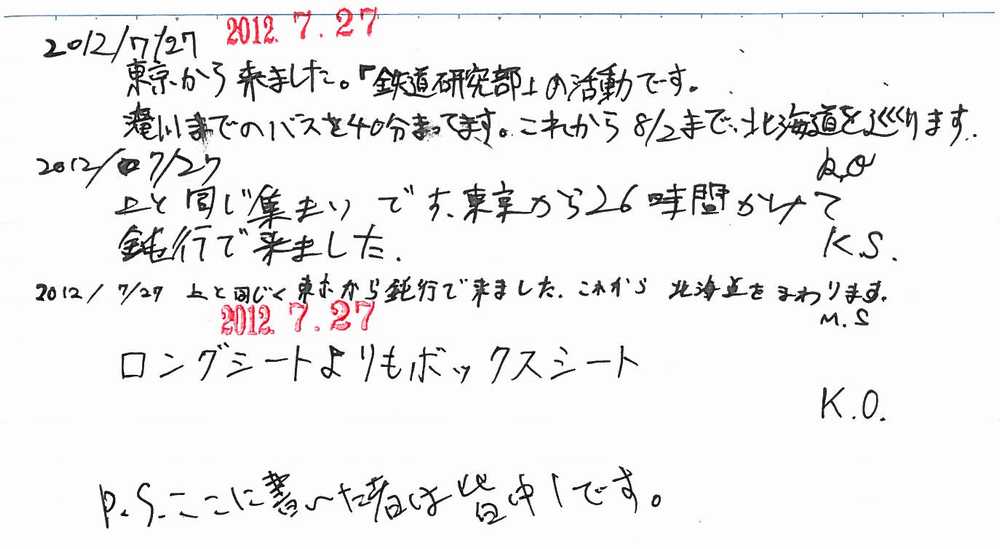 2012/7/27 2012.7.27
東京から来ました。『鉄道研究部』の活動です。
滝川までのバスを40分まってます。これから8/2まで、北海道を巡ります.
2012/07/27
上と同じ集まりです.東京から26時間かけて
鈍行で来ました.
K.S.
2012/7/27 上と同じく東京から鈍行で来ました.これから 北海道をまわります.
M.S
2012.7.27
ロングシートよりもボックスシート
K.O.
P.S.ここに書いた者は皆中1です。